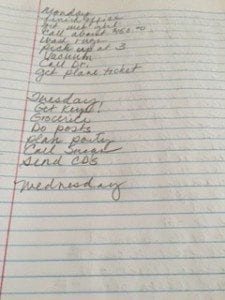 Monday
Finish office
Call about $150.00
Wash rugs
Pick up at 3
Vacuum
Call Dr.
get plane ticket
Tuesday
Get Keys!
Groceries
Do posts
plan party
Call Susan
Send CDs
Wednesday